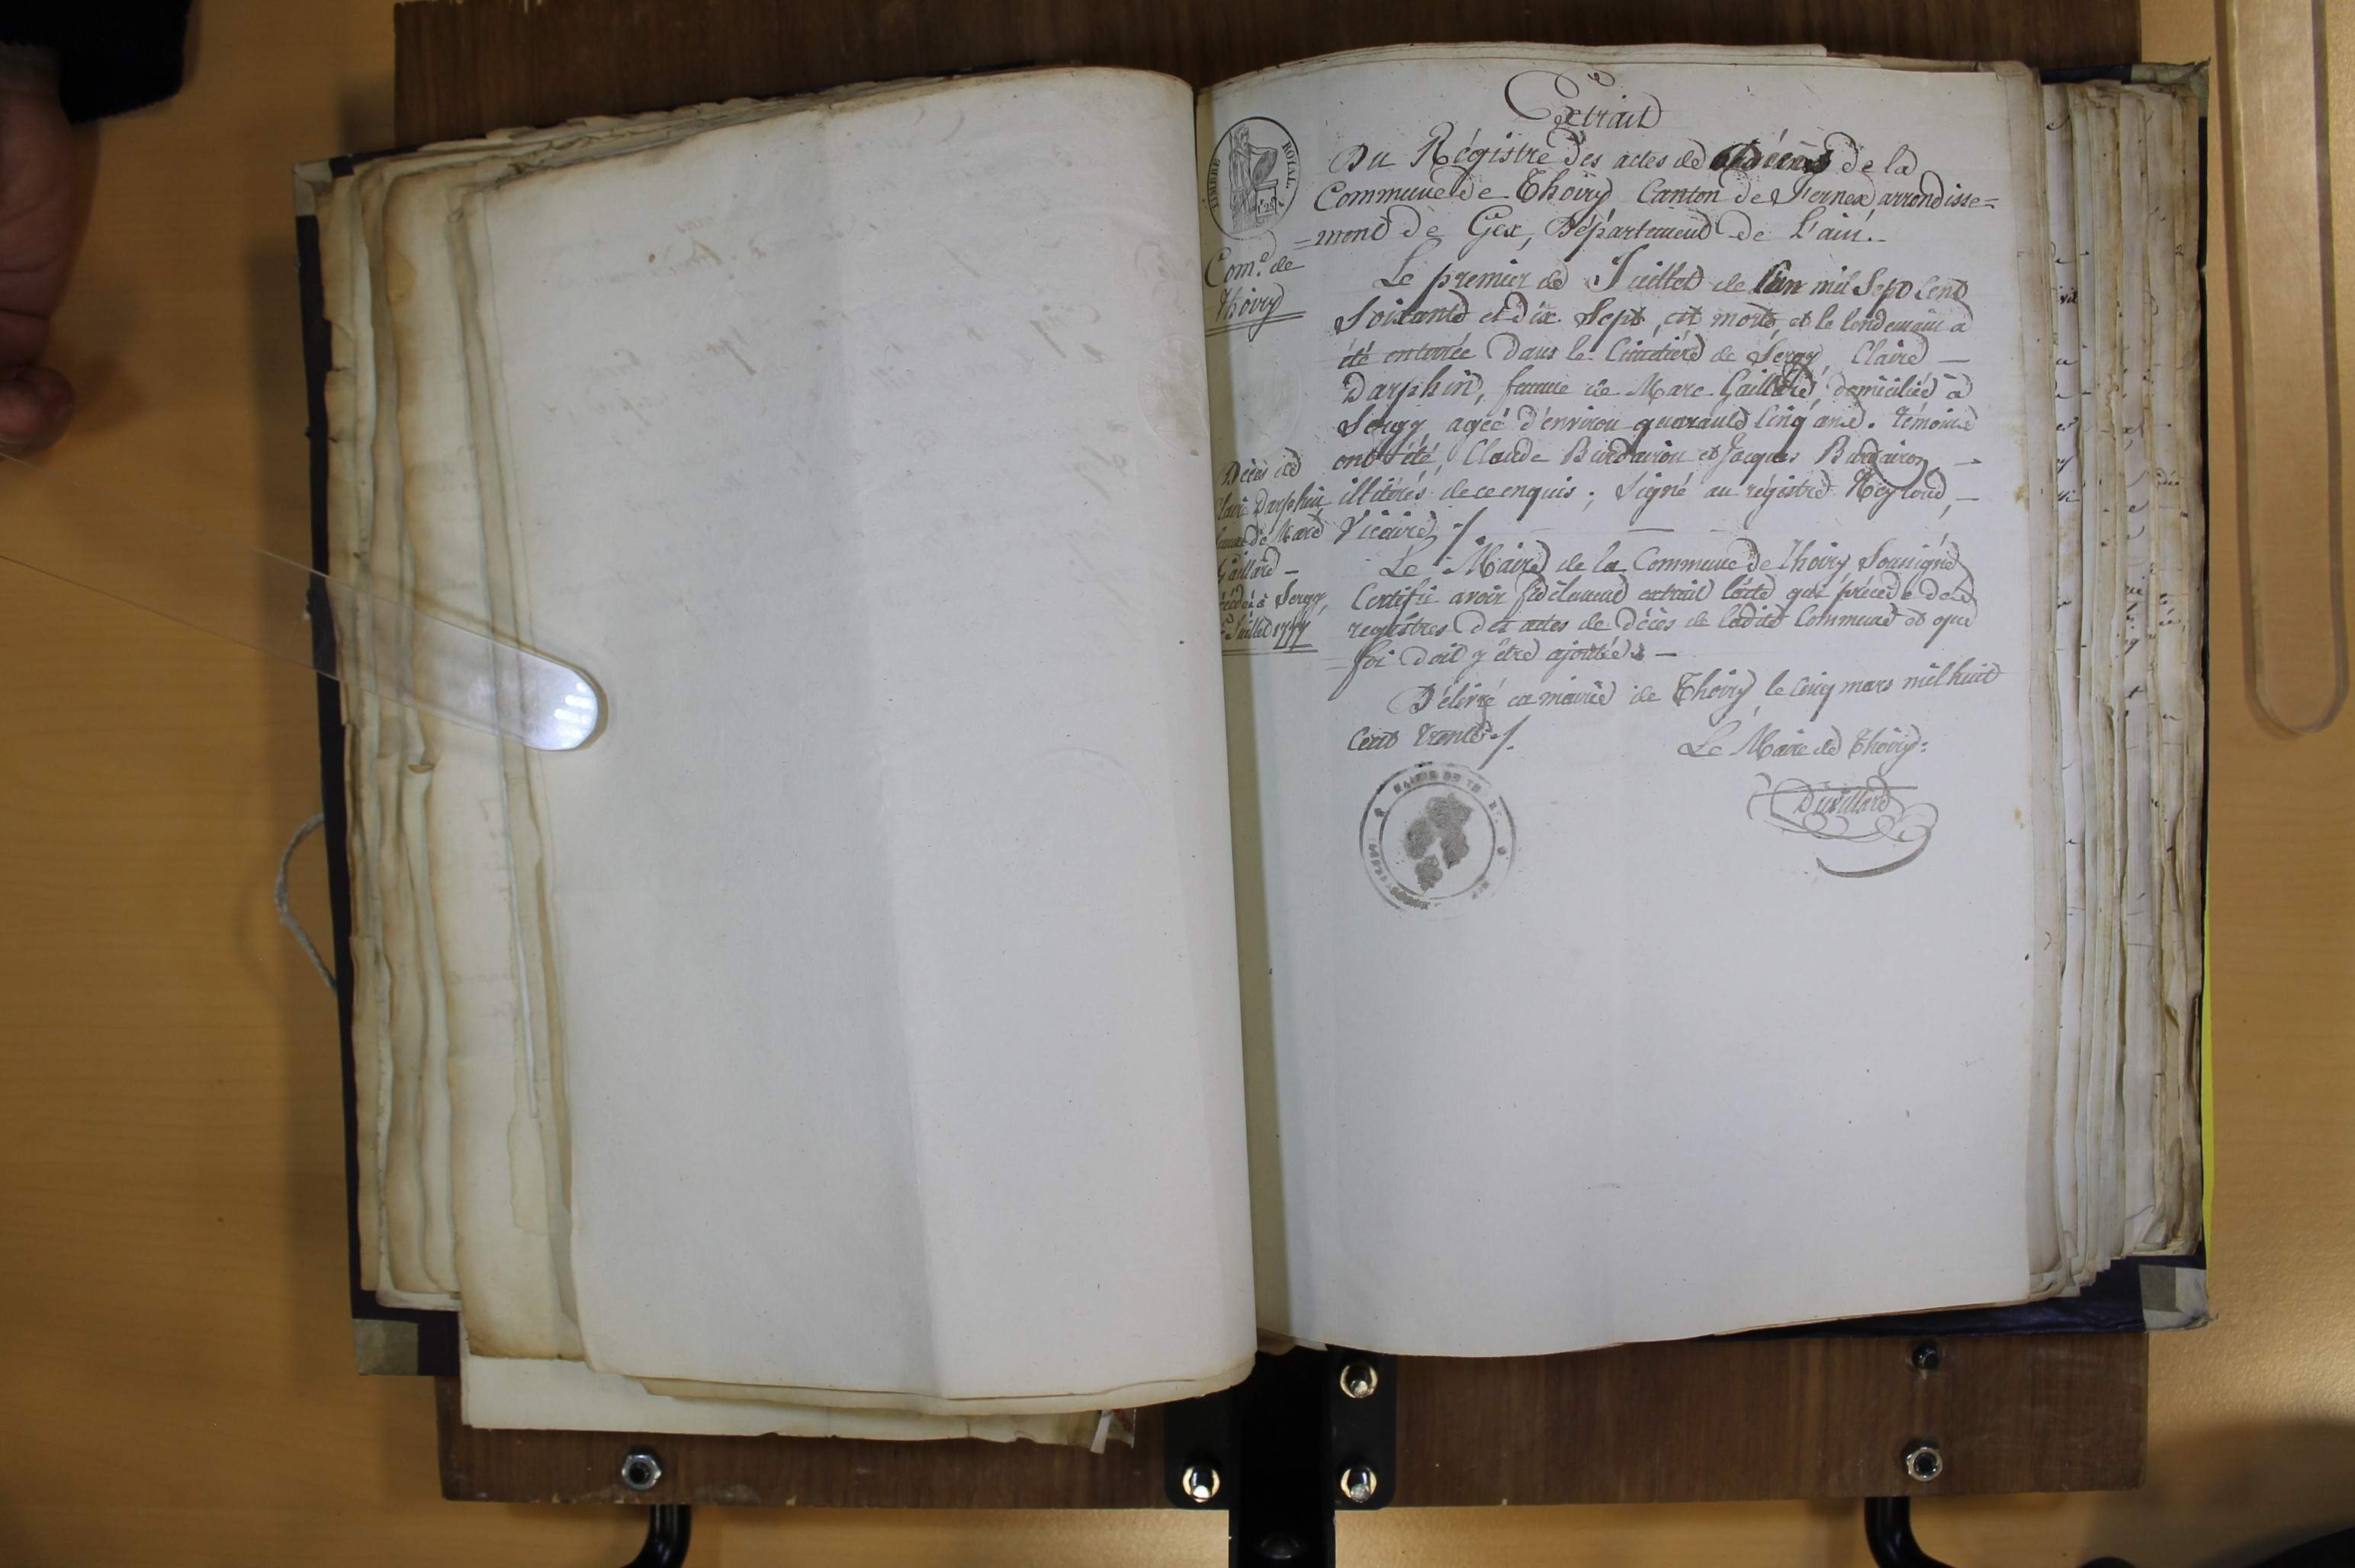 Extrait
Du Régistre des actes de décès de la
Commune de Thoiry Canton de Fernex arrondisse=
=ment de Gex, Département de l'ain.
TIMBRE ROYAL
Com.e de
Thoiry
Le premier de Juillet de l'an mil Sept Cent
Soixante et dix Sept, est morte, et le lendemain a
été enterrée dans le Cimetière de Sergy, Claire —
Darphin, femme de Marc Gaillard, domiciliée à
Sergy, agée d'environ quarante Cinq ans. témoins
ont été, Claude Burdairon et Jacques Burdairon, —
illitérés de ce enquis; Signé au régistre Neyroud, —
Vicaire ./.
Décès de
Claire Darphin
femme de Marc
Gaillard —
décédée à Sergy
Juillet 1777
Le Maire de la Commune de Thoiry Soussigné
Certifie avoir fidèlement extrait l'acte qui précède des
registres des actes de décès de ladite Commune et que
foi doit y être ajoutée. —
Délivré en mairie de Thoiry, le Cinq mars mil huit
Cent trente ./.
Le Maire de Thoiry:
Duvillard